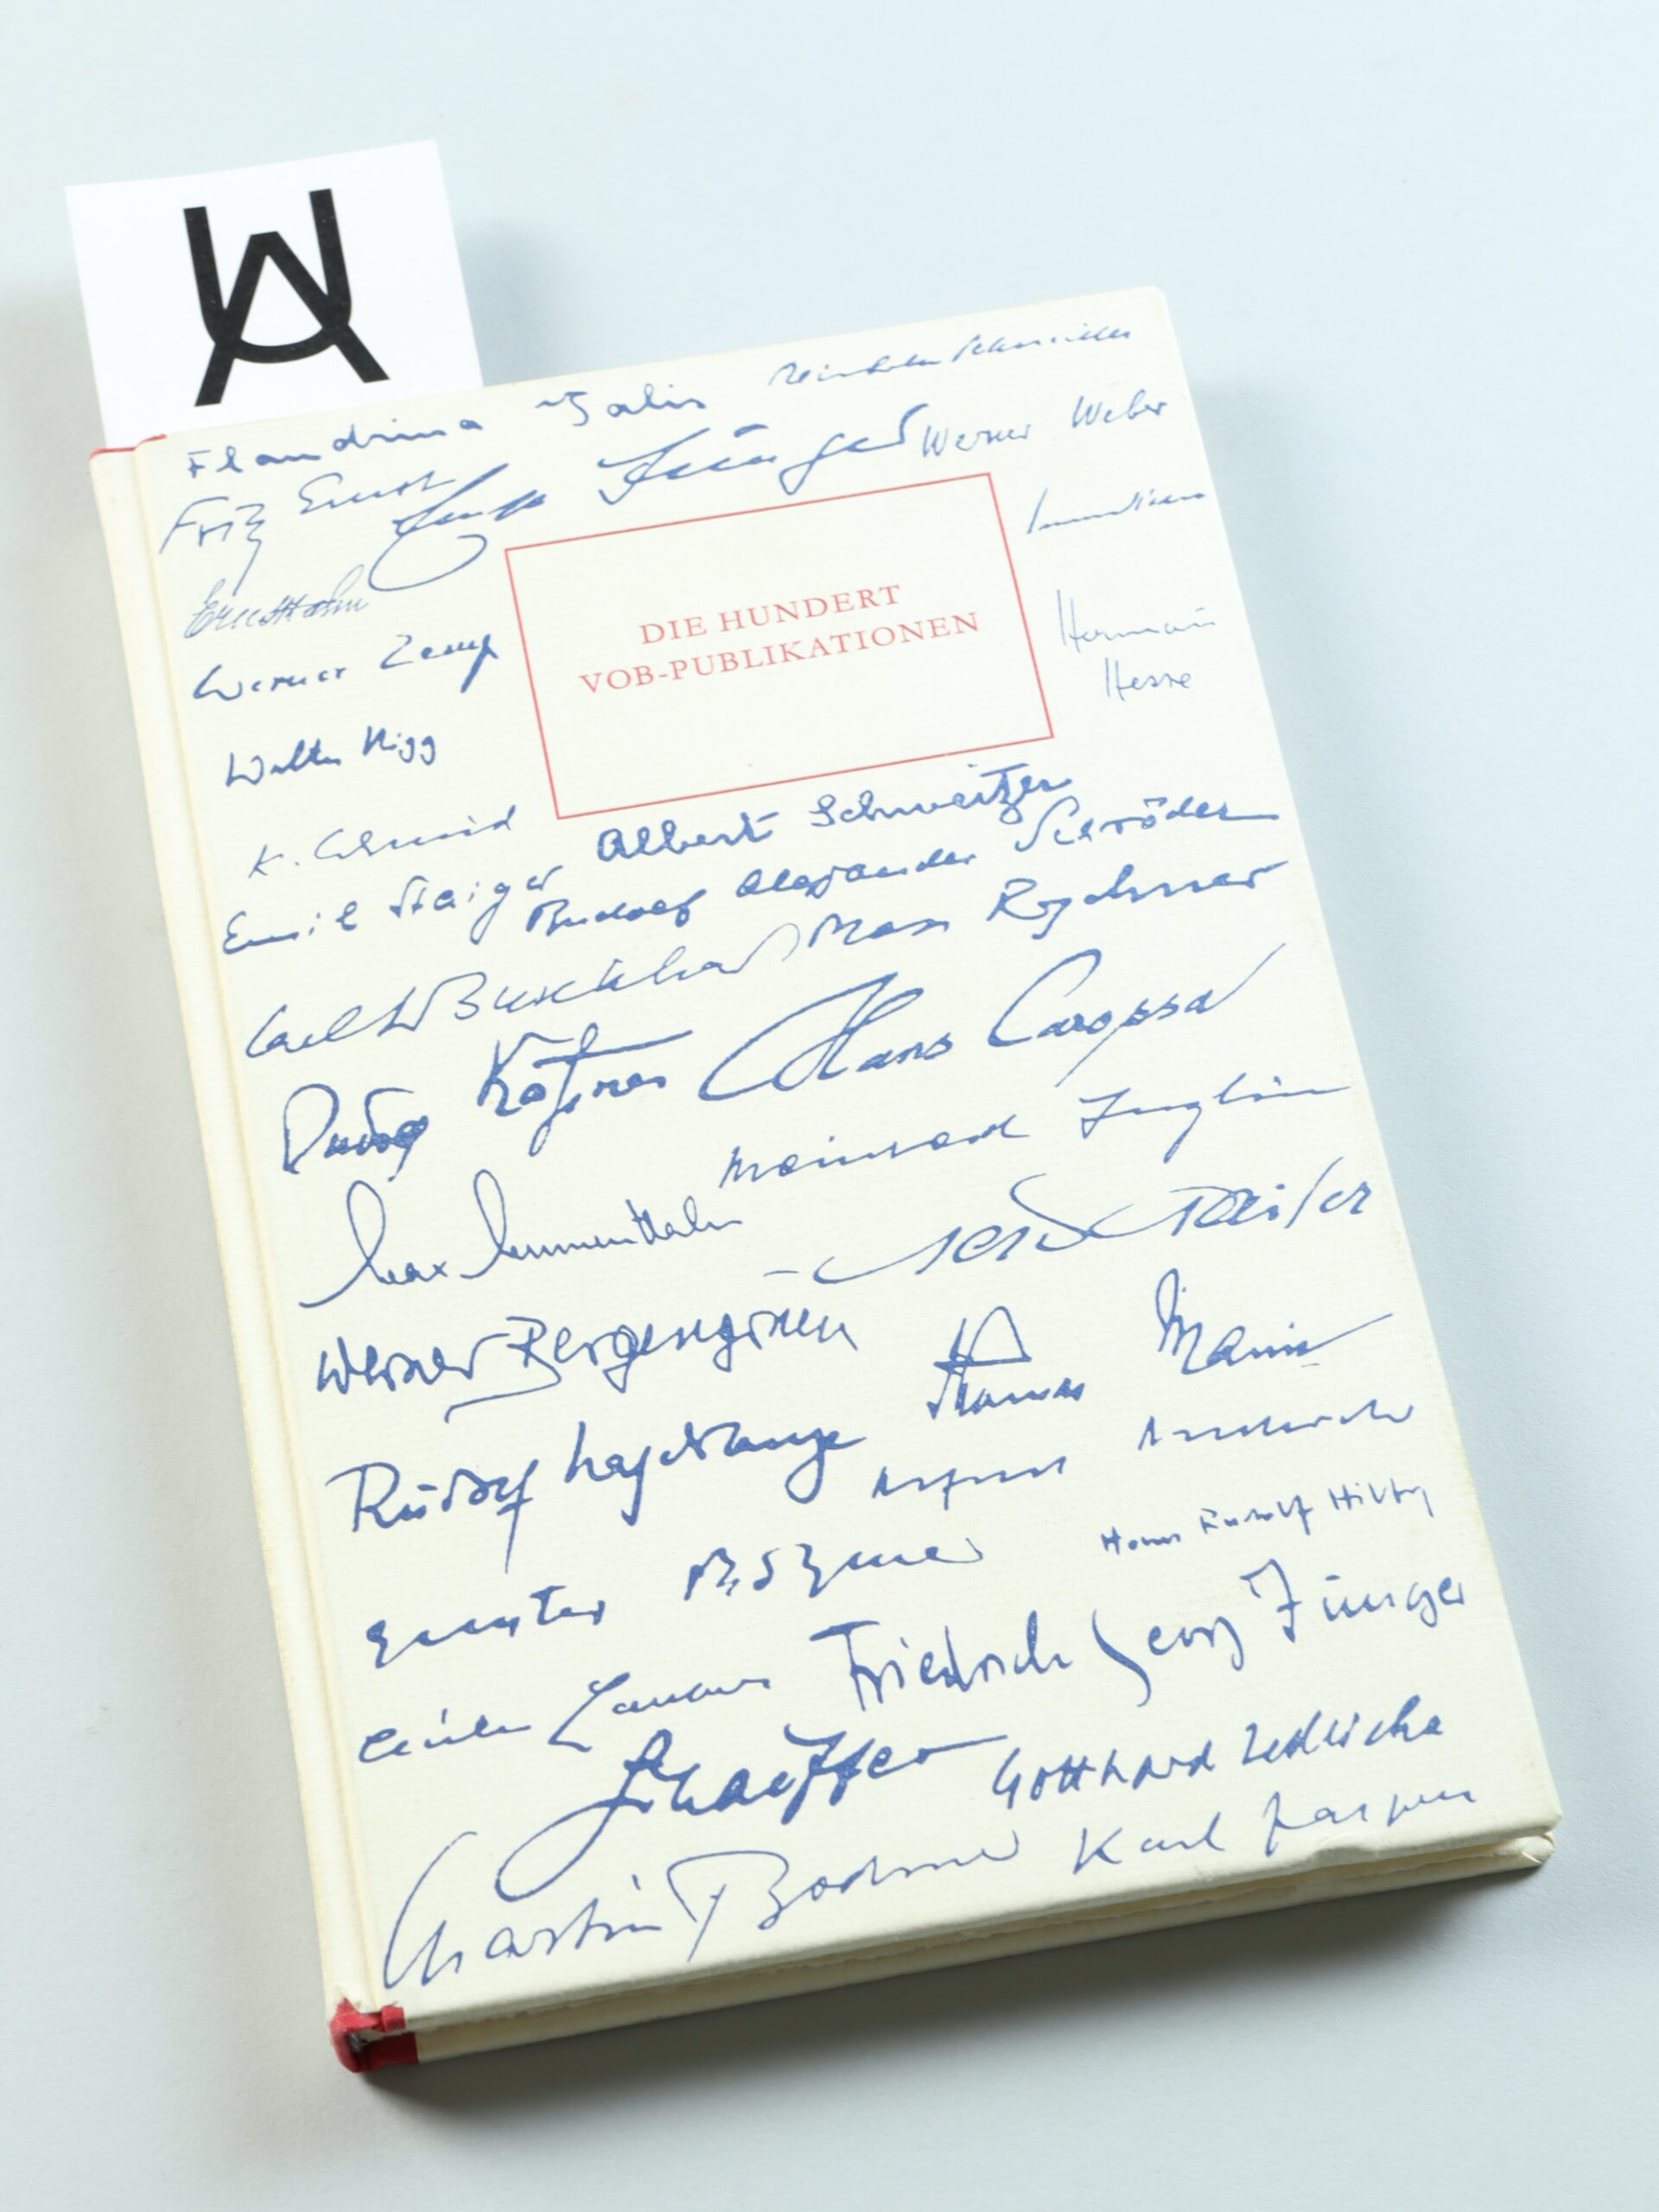 UA
Flandrina von Salis
Fritz Ernst Ernst Jünger Werner Weber
DIE HUNDERT
VOB-PUBLIKATIONEN
Ernst Hahn
Werner Zemp
Hermann
Hesse
Walter Nigg
K. Schmid
Albert Schweitzer
Emil Staiger Rudolf Alexander Schröder
Carl J. Burckhardt Max Rychner
Rudolf Kaßner Hans Carossa
Meinrad Inglin
Max
Werner Bergengruen
Thomas Mann
Rudolf Hagelstange
Hans Rudolf Hilty
Friedrich Georg Jünger
Schaeffer
Gotthard Jedlicka
Martin Bodmer Karl Jaspers